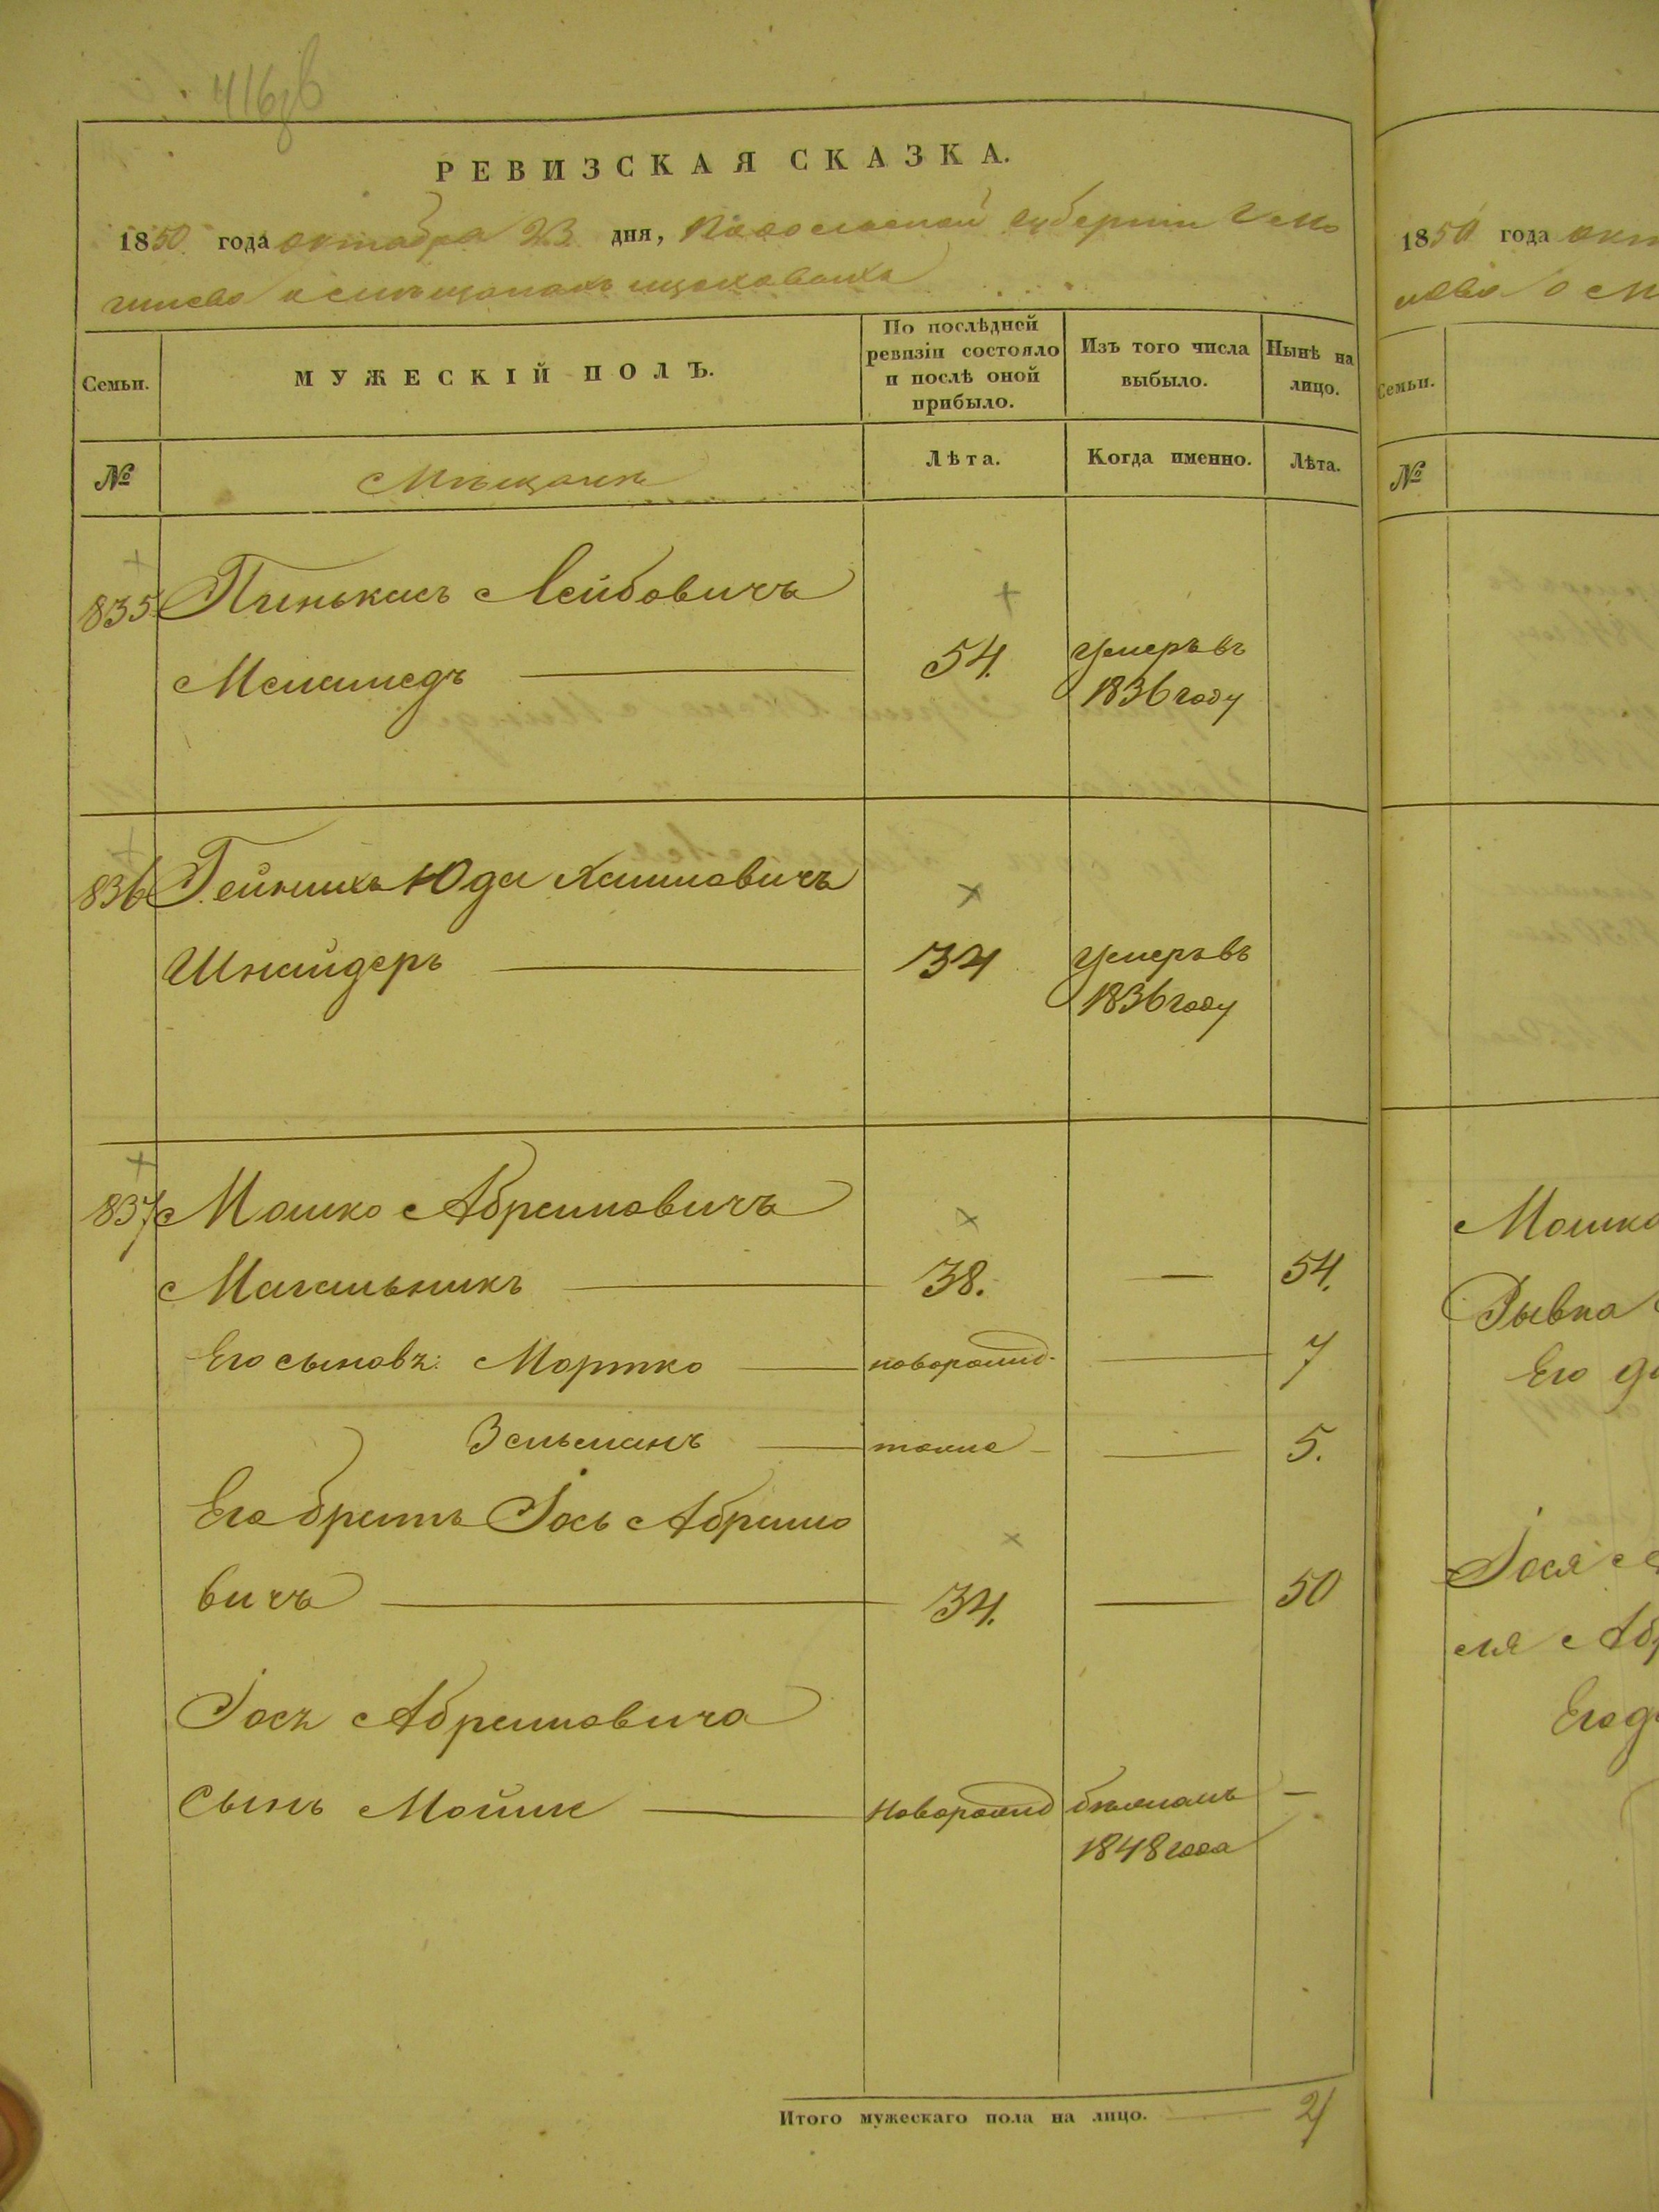 РЕВИЗСКАЯ СКАЗКА.
1850 года октября 23 дня, Подольской губернии
о мещанахъ
Семьи.
МУЖЕСКІЙ ПОЛЪ.
По послѣдней ревизіи состояло и послѣ оной прибыло.
Изъ того числа выбыло.
Нынѣ на лицо.
№
Мѣщане
Лѣта.
Когда именно.
Лѣта.
835 Пинькасъ Лейбовичъ
Меламедъ 54. умеръ въ
1836 году
836 Гейнихъ Юда Хаимовичъ
Шнайдеръ 34 умеръ въ
1836 году
837 Мошко Абрамовичъ
Магальникъ 38. — 54.
Его сыновъ: Мортко новорожд. — 7
Зельманъ тоже — 5.
Его братъ Іось Абрамо
вичъ 34. — 50
Іося Абрамовича
Сынъ Новорожд бѣжалъ —
1848 года
Итого мужескаго пола на лицо. 4
1850 года
о м
Семьи.
№
Мошко
Рывка
Его до
Іося
ля Аб
Его д